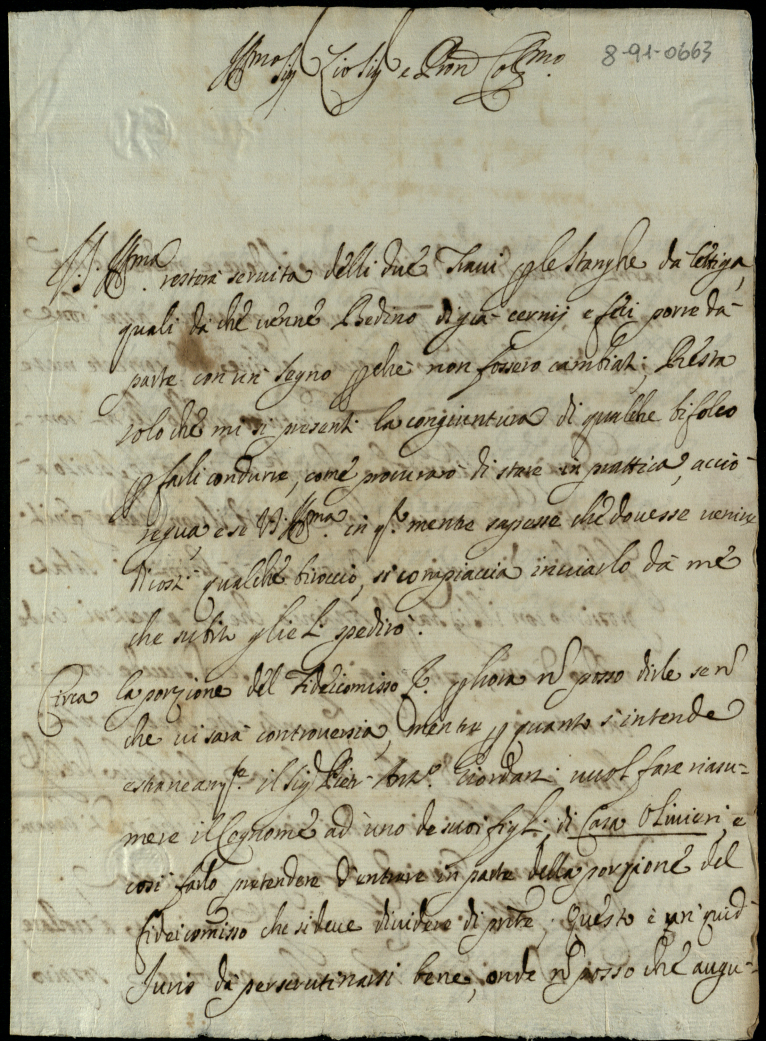 8-91-0663
Ill.mo Sig. Zio Sig. e Pron Col.mo
V.S. Ill.ma resterà servita delli due Travi p le stanghe da lettiga,
quali da che venne Bedino di già cernij, e feci porre da
parte con un segno pche non fossero cambiati; Resta
solo che mi si presenti la congiuntura di qualche bifolco
p farli condurre, come procurarò di stare in prattica, acciò
segua, e se VS Ill.ma in q.to mentre sapesse che dovesse venire
di costì qualche biroccio, si compiaccia inviarlo da me
che subito glie li spedirò.
Circa la porzione del Fideicomisso p hora nō posso dirle se nō
che vi sarà controversia, mentre p quanto s'intende
il Sig. Pier Ant.o Giordani vuol fare riasu=
mere il Cognome ad uno de suoi figli di Casa Olivieri, e
così farlo pretendere d'entrare in parte della porzione del
fideicomisso che si deve dividere di p.nte. Questo è un quid
Juris da perscrutinarsi bene, onde nō posso che augu=